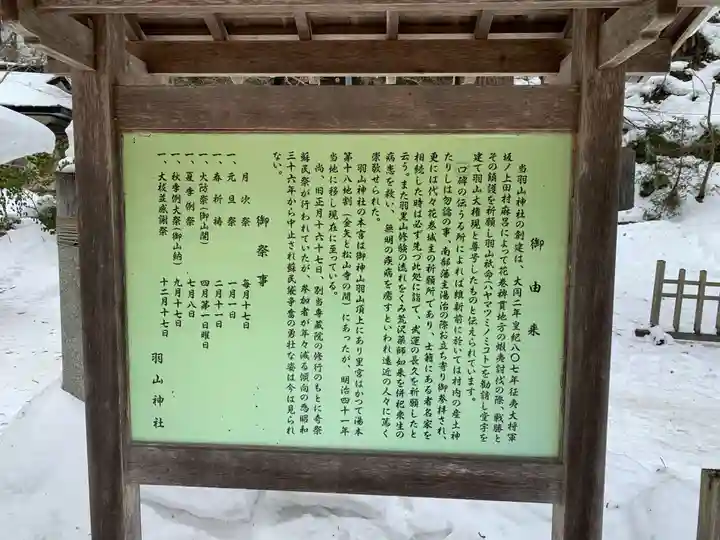 御由来
当羽山神社の創建は、大同二年皇紀八〇七年征夷大将軍
坂ノ上田村麻呂によって花巻稗貫地方の蝦夷討伐の際戦勝と
その鎮護を祈願し羽山祇命(ハヤマツミノミコト)を勧請し堂宇を
建て羽山大権現と尊号したものと伝えられています。
口碑の伝うる所によれば維新前に於いては村内の産土神
たりしは勿論の事、南部藩主湯治の際お立ち寄り御参拝され、
更には代々花巻城主の祈願所であり、士籍にある者名家を
相続した時は必ず先づ此処に詣で、武運の長久を祈願したと
云う。また羽黒山修験の流れをくみ鶯沢薬師如来を併祀衆生の
病患を救い、無明の疾病を癒すといわれ遠近の人々に篤く
崇敬せられた。
羽山神社の本宮は御神山羽山頂上にあり里宮はかつて湯本
第十八地割(金矢と松山寺の間)にあったが、明治四十一年
当地に移し現在に至っている。
尚、旧正月十六・十七日、別当専蔵院の修行のもとに奇祭
蘇民祭が行われていたが、参加者が年々減る傾向の為昭和
三十六年から中止され蘇民袋争奪の勇壮な姿は今は見られ
ない。
御祭事
一、月次祭 毎月十七日
一、元旦祭 一月一日
一、春祈祷 二月十一日
一、火防祭(御山開) 四月第一日曜日
一、夏季例祭 七月八日
一、秋季例大祭(御山納) 九月十七日
一、大祓並感謝祭 十二月十七日
羽山神社